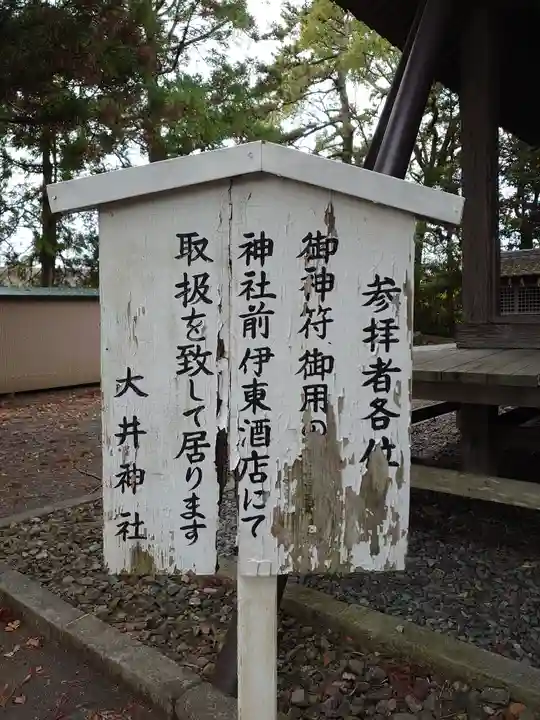 参拝者各位
御神符御用の
神社前伊東酒店にて
取扱を致して居ります
大井神社